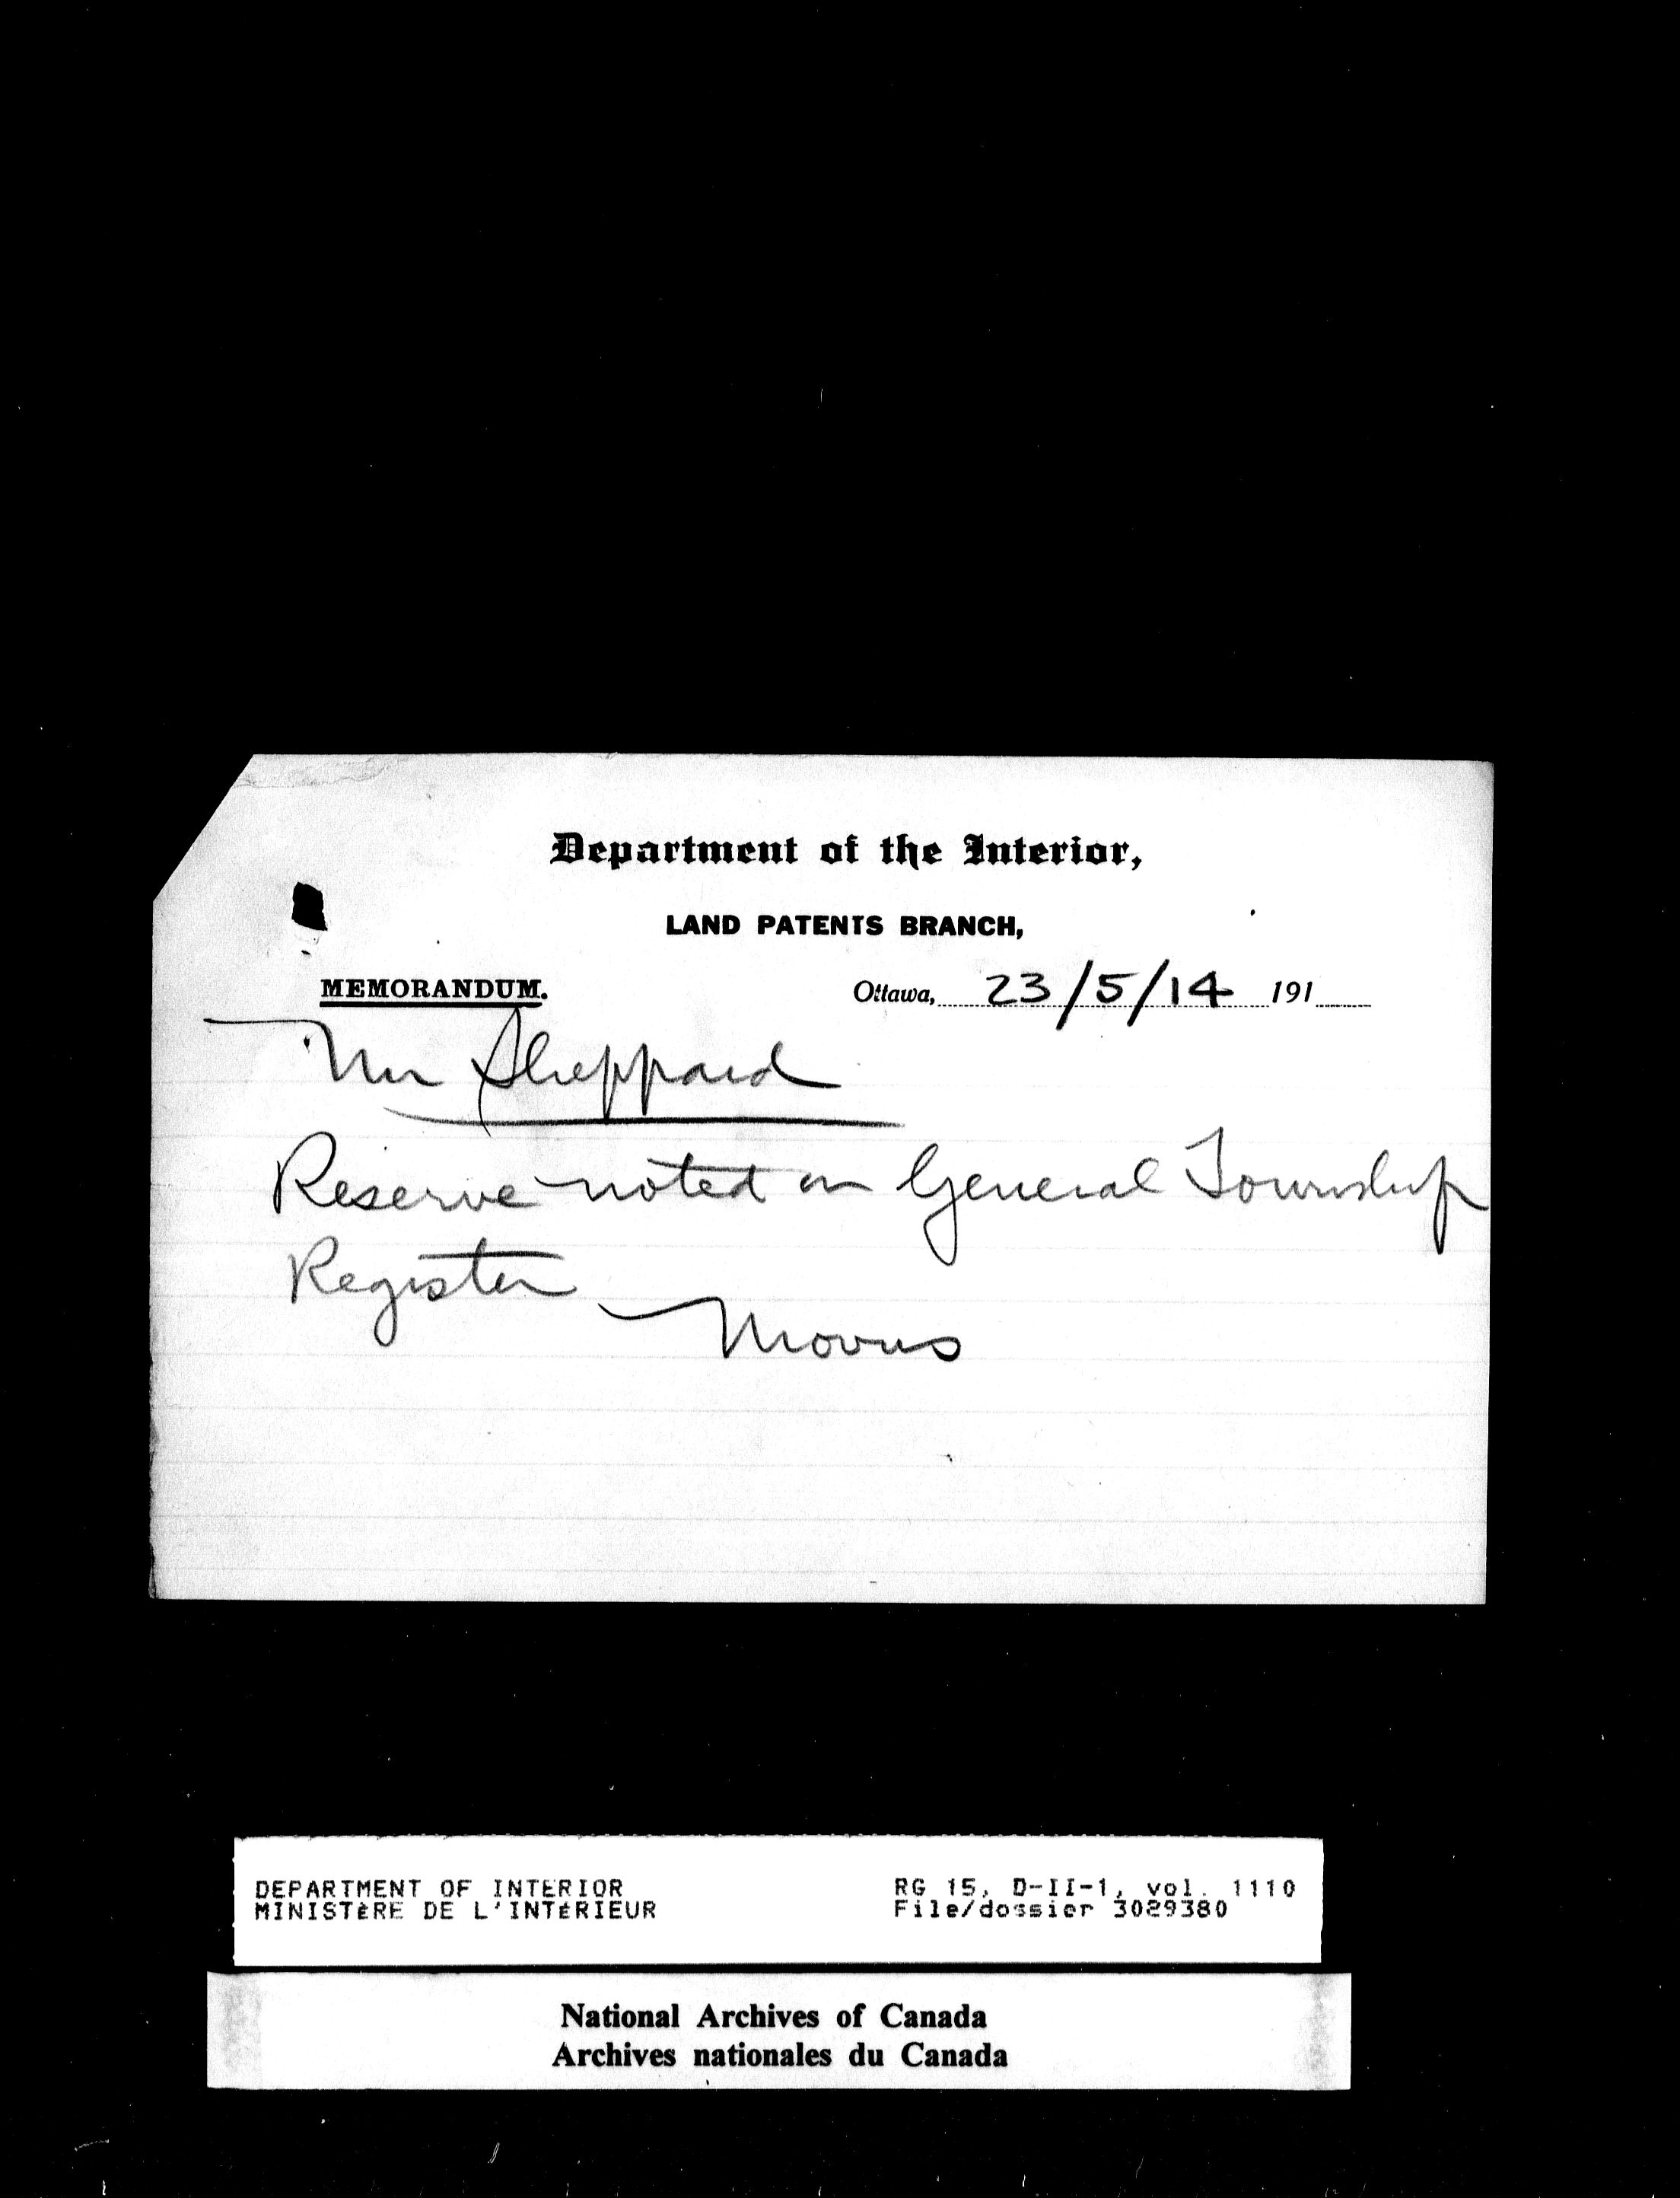 Department of the Interior,
LAND PATENTS BRANCH,
MEMORANDUM.
Ottawa, 23/5/14 191
Mr Sheppard
Reserve noted on General Township
Register
Morris
DEPARTMENT OF INTERIOR
MINISTÈRE DE L'INTÉRIEUR
RG 15, D-II-1, vol. 1110
File/dossier 3029380
National Archives of Canada
Archives nationales du Canada